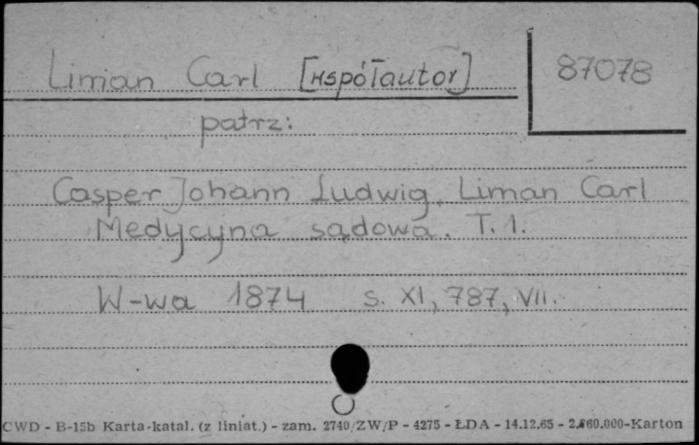 Liman Carl [współautor]
87078
patrz:
Casper Johann Ludwig, Liman Carl
Medycyna sądowa. T. 1.
W-wa 1874 s. XI, 787, VII.
CWD - B-15b Karta-katal. (z liniat.) - zam. 2740/ZW/P - 4275 - ŁDA - 14.12.65 - -Karton